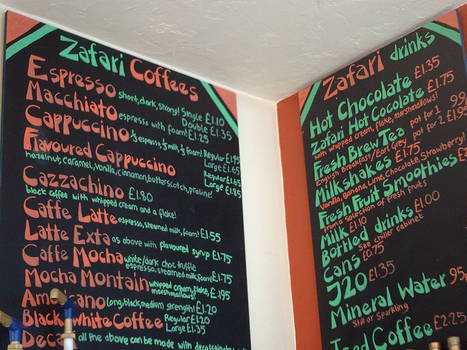 Zafari Coffees
Espresso short, dark, strong! Single £1.10
Double £1.35
Macchiato espresso with foam! £1.25
Cappuccino ⅓ espresso, ⅓ milk, ⅓ foam! Regular £1.55
Large £1.85
Flavoured Cappuccino Regular £1.65
hazelnut, caramel, vanilla, cinnamon, butterscotch, praline! Large £1.85
Cazzachino £1.80
black coffee with whipped cream and a flake!
Caffe Latte espresso, steamed milk, foam! £1.55
Latte Exta as above with flavoured syrup £1.75
Caffe Mocha white/dark choc truffle
espresso, steamed milk, foam! £1.75
Mocha Montain whipped cream, flake,
marshmallows! £1.95
Am cano (long, black, medium strength) £1.20
Black/white Coffee Regular £1.20
Large £1.35
Deca all the above can be made with
Zafari drinks
Hot Chocolate £1.35
Zafari Hot Cocolate £1.75
with whipped cream, flake, marshmallows!
Fresh Brew Tea pot for 1
English Breakfast/Earl Grey pot for 2 £1.95
Milkshakes £1.75
Vanilla, Banana, Lime, Chocolate, Strawberry
Fresh Fruit Smoothies
from a selection of fresh fruits
Milk £1.00
Bottled drinks
See chiller cabinet
Cans £0.75
J20 £1.35
Mineral Water 95
Still or Sparkling
Iced Coffee £2.25